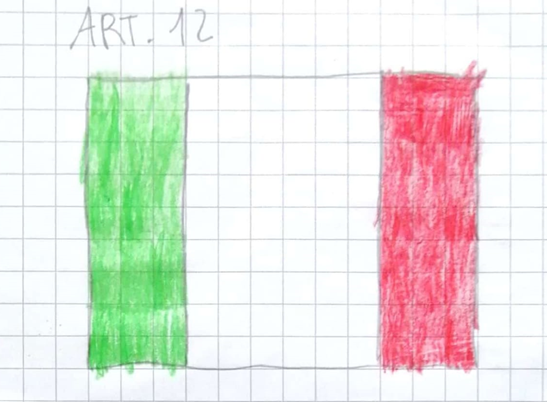 ART. 12